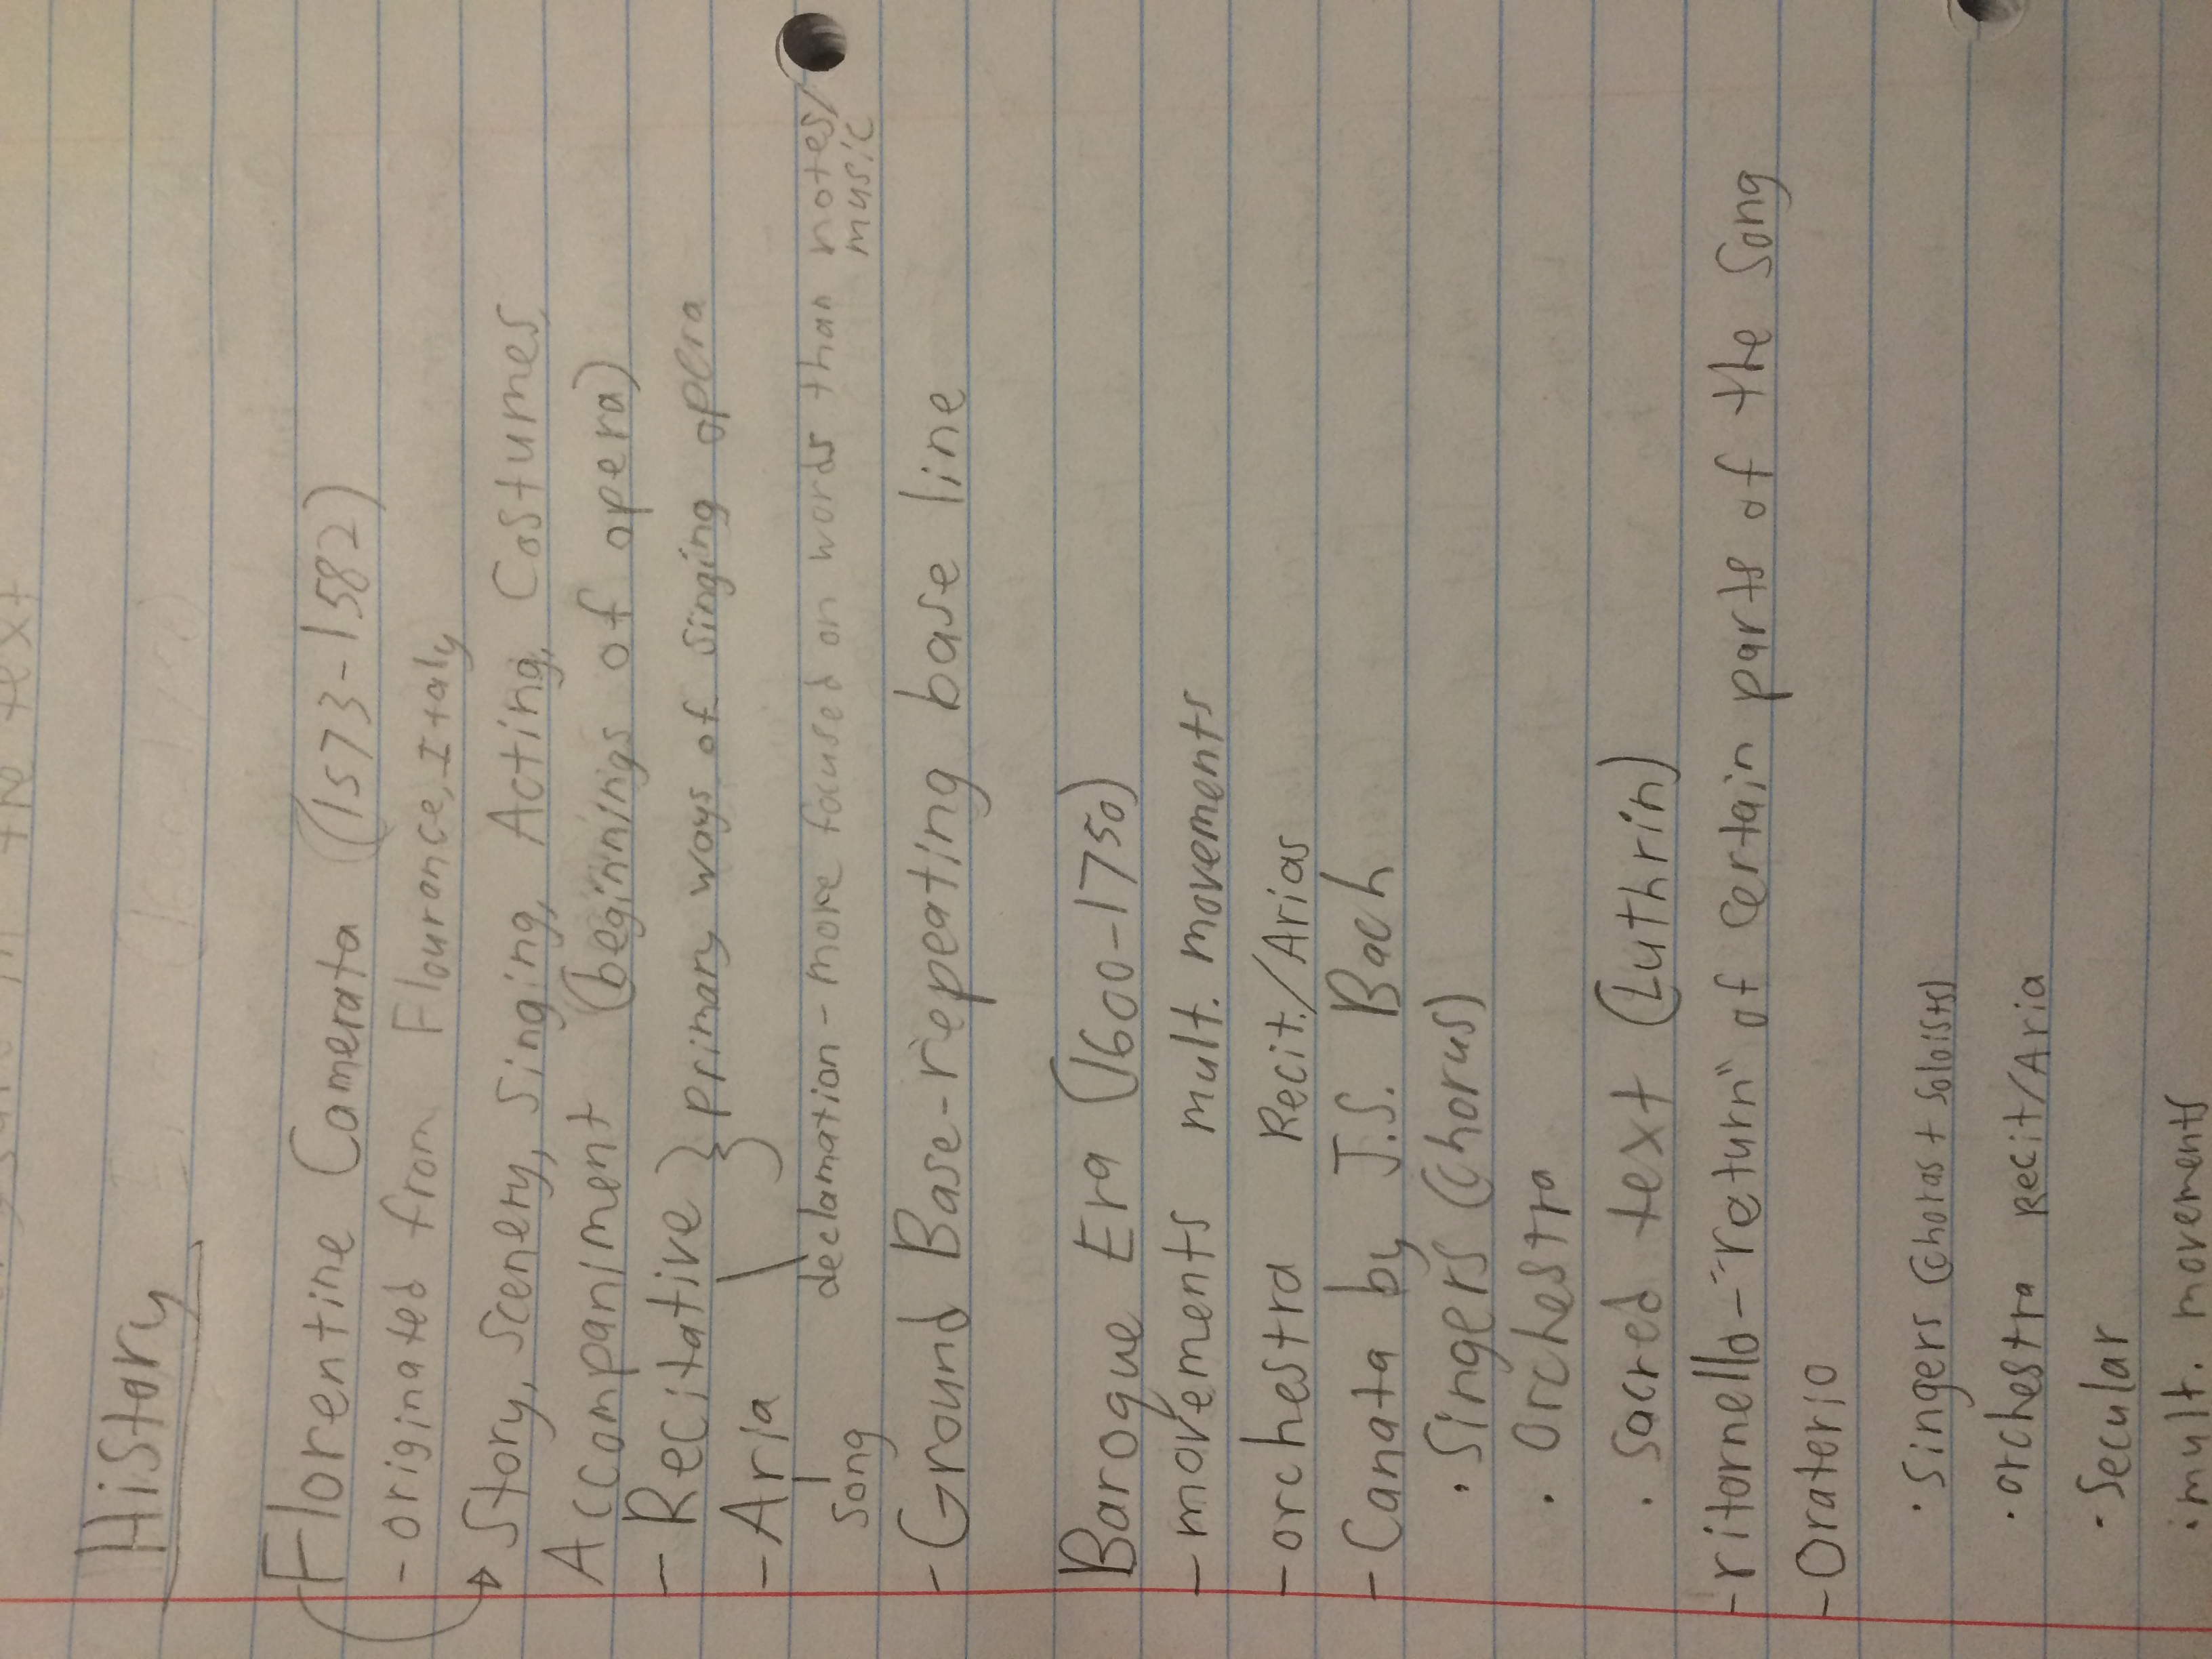 History
Florentine Camerata (1573-1582)
- originated from Flourance, Italy
Story, Scenery, Singing, Acting, Costumes,
Accompaniment (beginnings of opera)
- Recitative } primary ways of singing opera
- Aria
declamation - more focused on words than notes/
music
song
- Ground Base - repeating base line
Baroque Era (1600-1750)
- movements mult. movements
- orchestra Recit./Arias
- Canata by J.S. Bach
· Singers (Chorus)
· Orchestra
· Sacred text (Luthrin)
- ritornello - "return" of certain parts of the song
- Oraterio
· Singers (Choras + Soloists)
· orchestra Recit/Aria
· Secular
· mult. movements